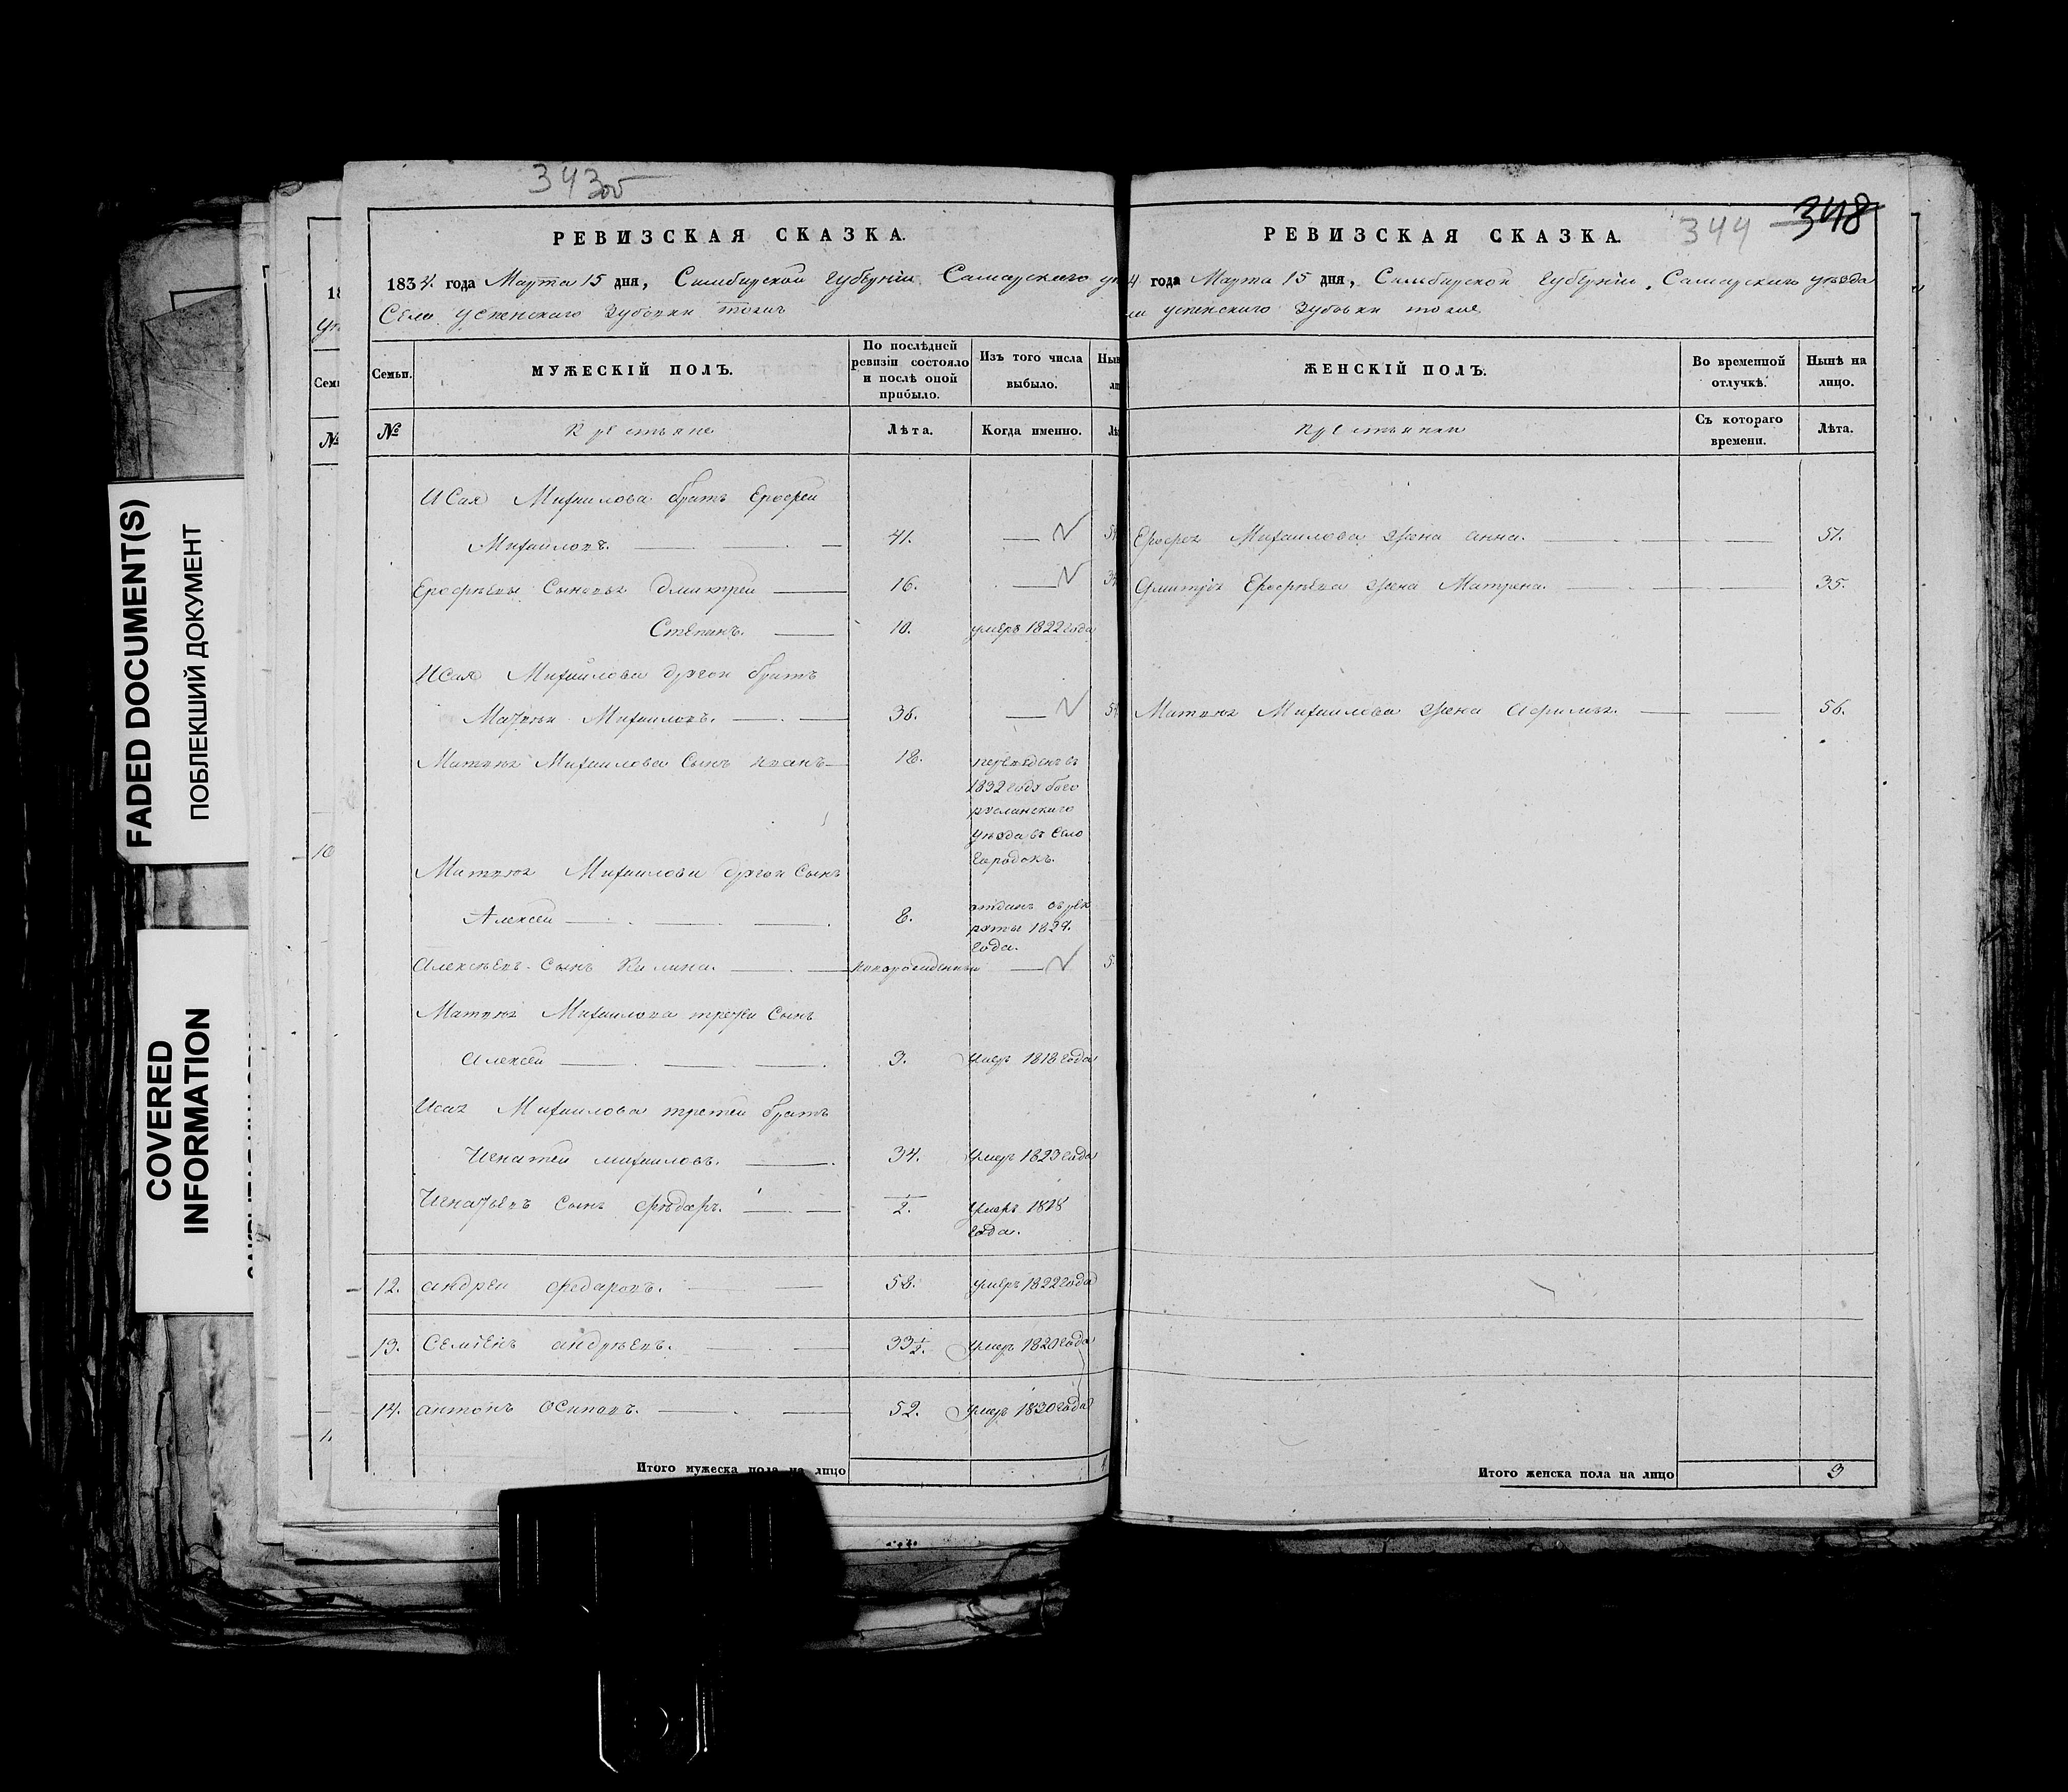 343 об
РЕВИЗСКАЯ СКАЗКА.
1834 года Марта 15 дня, Симбирской губерніи Самарскаго
Села успенскаго Зубовки тожъ
Семьи.
МУЖЕСКІЙ ПОЛЪ.
По послѣдней ревизіи состояло и послѣ оной прибыло.
Изъ того числа выбыло.
№
Крестьяне
Лѣта.
Когда именно.
Исая Михаилова братъ Ерофей
Михаиловъ. 41.
Ерофѣевы Сыновья Дмитрей 16.
Степанъ. 10. умеръ 1822 года
Исая Михаилова другой братъ
Матвей Михаиловъ. 36.
Матвея Михаилова Сынъ иванъ 18. переведенъ въ
1832 году буго
русланскаго
уѣзда въ Село
Городокъ.
Матвея Михаилова другой Сынъ
Алексей 8. отданъ въ рек
руты 1829.
года.
Алексѣевъ Сынъ Калина. новорожденный
Матвея Михаилова третей Сынъ
Алексей 3. умеръ 1818 года
Исая Михаилова третей братъ
Игнатей михаиловъ. 34. умеръ 1823 года
Игнатьевъ Сынъ Фѣдоръ. 1/2. умеръ 1818
года.
12. андрей Федаровъ. 58. умеръ 1822 года
13. Семіенъ андрѣевъ. 33 1/2. умеръ 1820 года
14. антонъ Осиповъ. 52. умеръ 1830 года
Итого мужеска пола на лицо
344 348
РЕВИЗСКАЯ СКАЗКА.
4 года Марта 15 дня, Симбирской губерніи, Самарскаго уѣзда
успенскаго Зубовки тоже
ЖЕНСКІЙ ПОЛЪ.
Во временной отлучкѣ.
Нынѣ на лицо.
Крестьянки
Съ котораго времени.
Лѣта.
Ерофея Михаилова жена анна. 51.
Дмитрея Ерофѣева жена Матрена. 35.
Матвея Михаилова жена Афимья. 56.
Итого женска пола на лицо 3
FADED DOCUMENT(S)
ПОБЛЕКШИЙ ДОКУМЕНТ
COVERED
INFORMATION